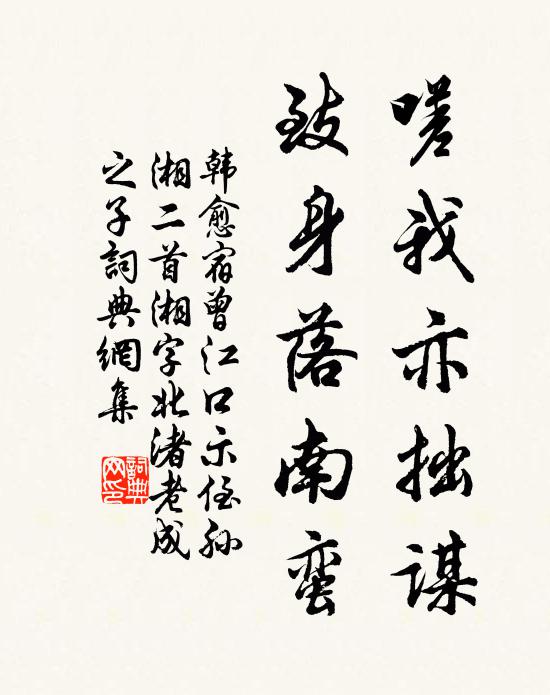 嗟我亦拙谋
致身落南蛮
韩愈宿曾江口示侄孙
湘二首湘字北渚老成
之子詞典網集
詞典网印